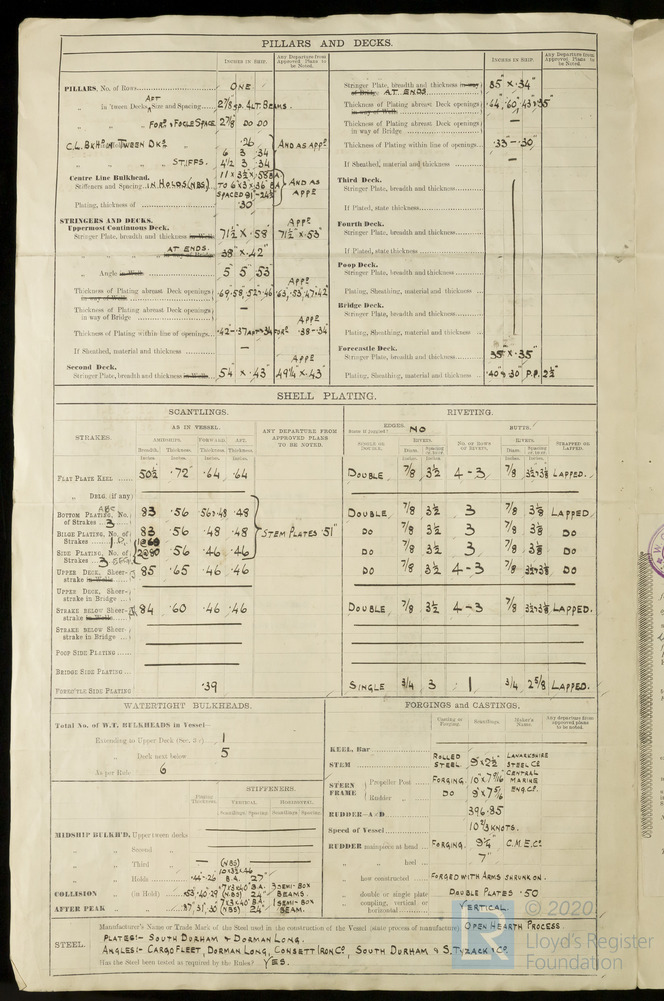 PILLARS AND DECKS.
INCHES IN SHIP. Any Departure from Approved Plans to be Noted.
PILLARS, No. of Rows ONE
„ In 'tween Decks, AFT Size and Spacing 2 7/8 SP. ALT. BEAMS.
„ „ FORD & FOCLE SPACE 2 7/8 DO DO
C.L. BKHD IN TWEEN DKS .26
6 3 .34 AND AS APPD
„ „ STIFFS. 4 1/2 3 .34
Centre Line Bulkhead.
Stiffeners and Spacing IN HOLDS (NBS)
TO 6 X 3 X .36 BA AND AS APPD
Plating, thickness of .30
STRINGERS AND DECKS.
Uppermost Continuous Deck. APPD
Stringer Plate, breadth and thickness in Wells 71 1/2 X .59 71 1/2" X .53
„ „ AT ENDS. 38" X .42"
„ Angle in Wells 5 5 .53
Thickness of Plating abreast Deck openings in way of Wells APPD
Thickness of Plating abreast Deck openings in way of Bridge —
Thickness of Plating within line of openings APPD .38-.34
If Sheathed, material and thickness —
Second Deck. APPD
Stringer Plate, breadth and thickness in Wells 54" X .43" 49 1/4 X .43"
INCHES IN SHIP. Any Departure from Approved Plans to be Noted.
Stringer Plate, breadth and thickness in way of Bridge AT ENDS. 35" X .34"
Thickness of Plating abreast Deck openings in way of Wells
Thickness of Plating abreast Deck openings in way of Bridge —
Thickness of Plating within line of openings .33 - .30
If Sheathed, material and thickness —
Third Deck.
Stringer Plate, breadth and thickness
If Plated, state thickness
Fourth Deck.
Stringer Plate, breadth and thickness
If Plated, state thickness
Poop Deck.
Stringer Plate, breadth and thickness
Plating, Sheathing, material and thickness
Bridge Deck.
Stringer Plate, breadth and thickness
Plating, Sheathing, material and thickness
Forecastle Deck.
Stringer Plate, breadth and thickness 35" X .35"
Plating, Sheathing, material and thickness .40 & .30 P.P. 2 1/2"
SHELL PLATING.
SCANTLINGS. RIVETING.
STRAKES. AS IN VESSEL. ANY DEPARTURE FROM APPROVED PLANS TO BE NOTED.
AMIDSHIPS. FORWARD AFT.
Breadth. Thickness. Thickness. Thickness.
Inches. Inches. Inches. Inches.
EDGES. NO BUTTS.
SINGLE OR DOUBLE. RIVETS. No. OF ROWS OF RIVETS. RIVETS. STRAPPED OR LAPPED.
FLAT PLATE KEEL 50 1/2 .72 .64 .64 DOUBLE 7/8 3 1/2 4-3 7/8 LAPPED.
„ DBLG. (if any)
BOTTOM PLATING, No. of Strakes ABC 3 83 .56 .48 DOUBLE 7/8 3 1/2 3 7/8 3 1/8 LAPPED
BILGE PLATING, No. of Strakes 1 D. 83 .56 .48 .48 STEM PLATES .51" DO 7/8 3 1/2 3 7/8 3 1/8 DO
SIDE PLATING, No. of Strakes 3 .56 .46 .46 DO 7/8 3 1/2 3 7/8 3 1/8 DO
UPPER DECK, Sheerstrake in Wells 85 .65 .46 .46 DO 7/8 3 1/2 4-3 7/8 DO
UPPER DECK, Sheerstrake in Bridge
STRAKE BELOW Sheerstrake in Wells 84 .60 .46 .46 DOUBLE 7/8 3 1/2 4-3 7/8 LAPPED.
STRAKE BELOW Sheerstrake in Bridge
POOP SIDE PLATING
BRIDGE SIDE PLATING
FOREC'TLE SIDE PLATING .39 SINGLE 3/4 3 1 3/4 2 5/8 LAPPED.
WATERTIGHT BULKHEADS.
Total No. of W.T. BULKHEADS in Vessel—
Extending to Upper Deck 1
„ Deck next below 5
As per Rule 6
Plating Thickness. STIFFENERS.
VERTICAL. HORIZONTAL.
Scantlings. Spacing. Scantlings. Spacing.
MIDSHIP BULKH'D, Upper 'tween decks
„ „ Second „
„ „ Third „ — (NBS)
„ „ Holds .44-.26 B.A. 27"
COLLISION „ (in Hold) .53.40.29 (NBS) 24" 3 SEMI-BOX BEAMS.
AFTER PEAK „ „ .37,.31,.30 (NBS) 24" 1 SEMI-BOX BEAM.
FORGINGS and CASTINGS.
Casting or Forging. Scantlings. Maker's Name. Any departure from approved plans to be noted.
KEEL, Bar
STEM ROLLED STEEL 9" X 2 1/2" LANARKSHIRE STEEL Co
STERN FRAME { Propeller Post FORGING. 10" X 7 9/16 CENTRAL MARINE ENG. Co.
Rudder „ DO 9" X 7 5/16
RUDDER—A×D 396.85
Speed of Vessel 10 2/3 KNOTS.
RUDDER mainpiece at head FORGING. 9 1/4" C.M.E.Co.
„ „ heel 7"
„ how constructed FORGED WITH ARMS SHRUNK ON.
„ double or single plate DOUBLE PLATES .50
„ coupling, vertical or horizontal VERTICAL.
STEEL. Manufacturer's Name or Trade Mark of the Steel used in the construction of the Vessel (state process of manufacture) OPEN HEARTH PROCESS
PLATES:- SOUTH DURHAM & DORMAN LONG.
ANGLES:- CARGO FLEET, DORMAN LONG, CONSETT IRON Co, SOUTH DURHAM & S. TYZACK & Co.
Has the Steel been tested as required by the Rules? YES.
© 2020
LR
Lloyd's Register
Foundation